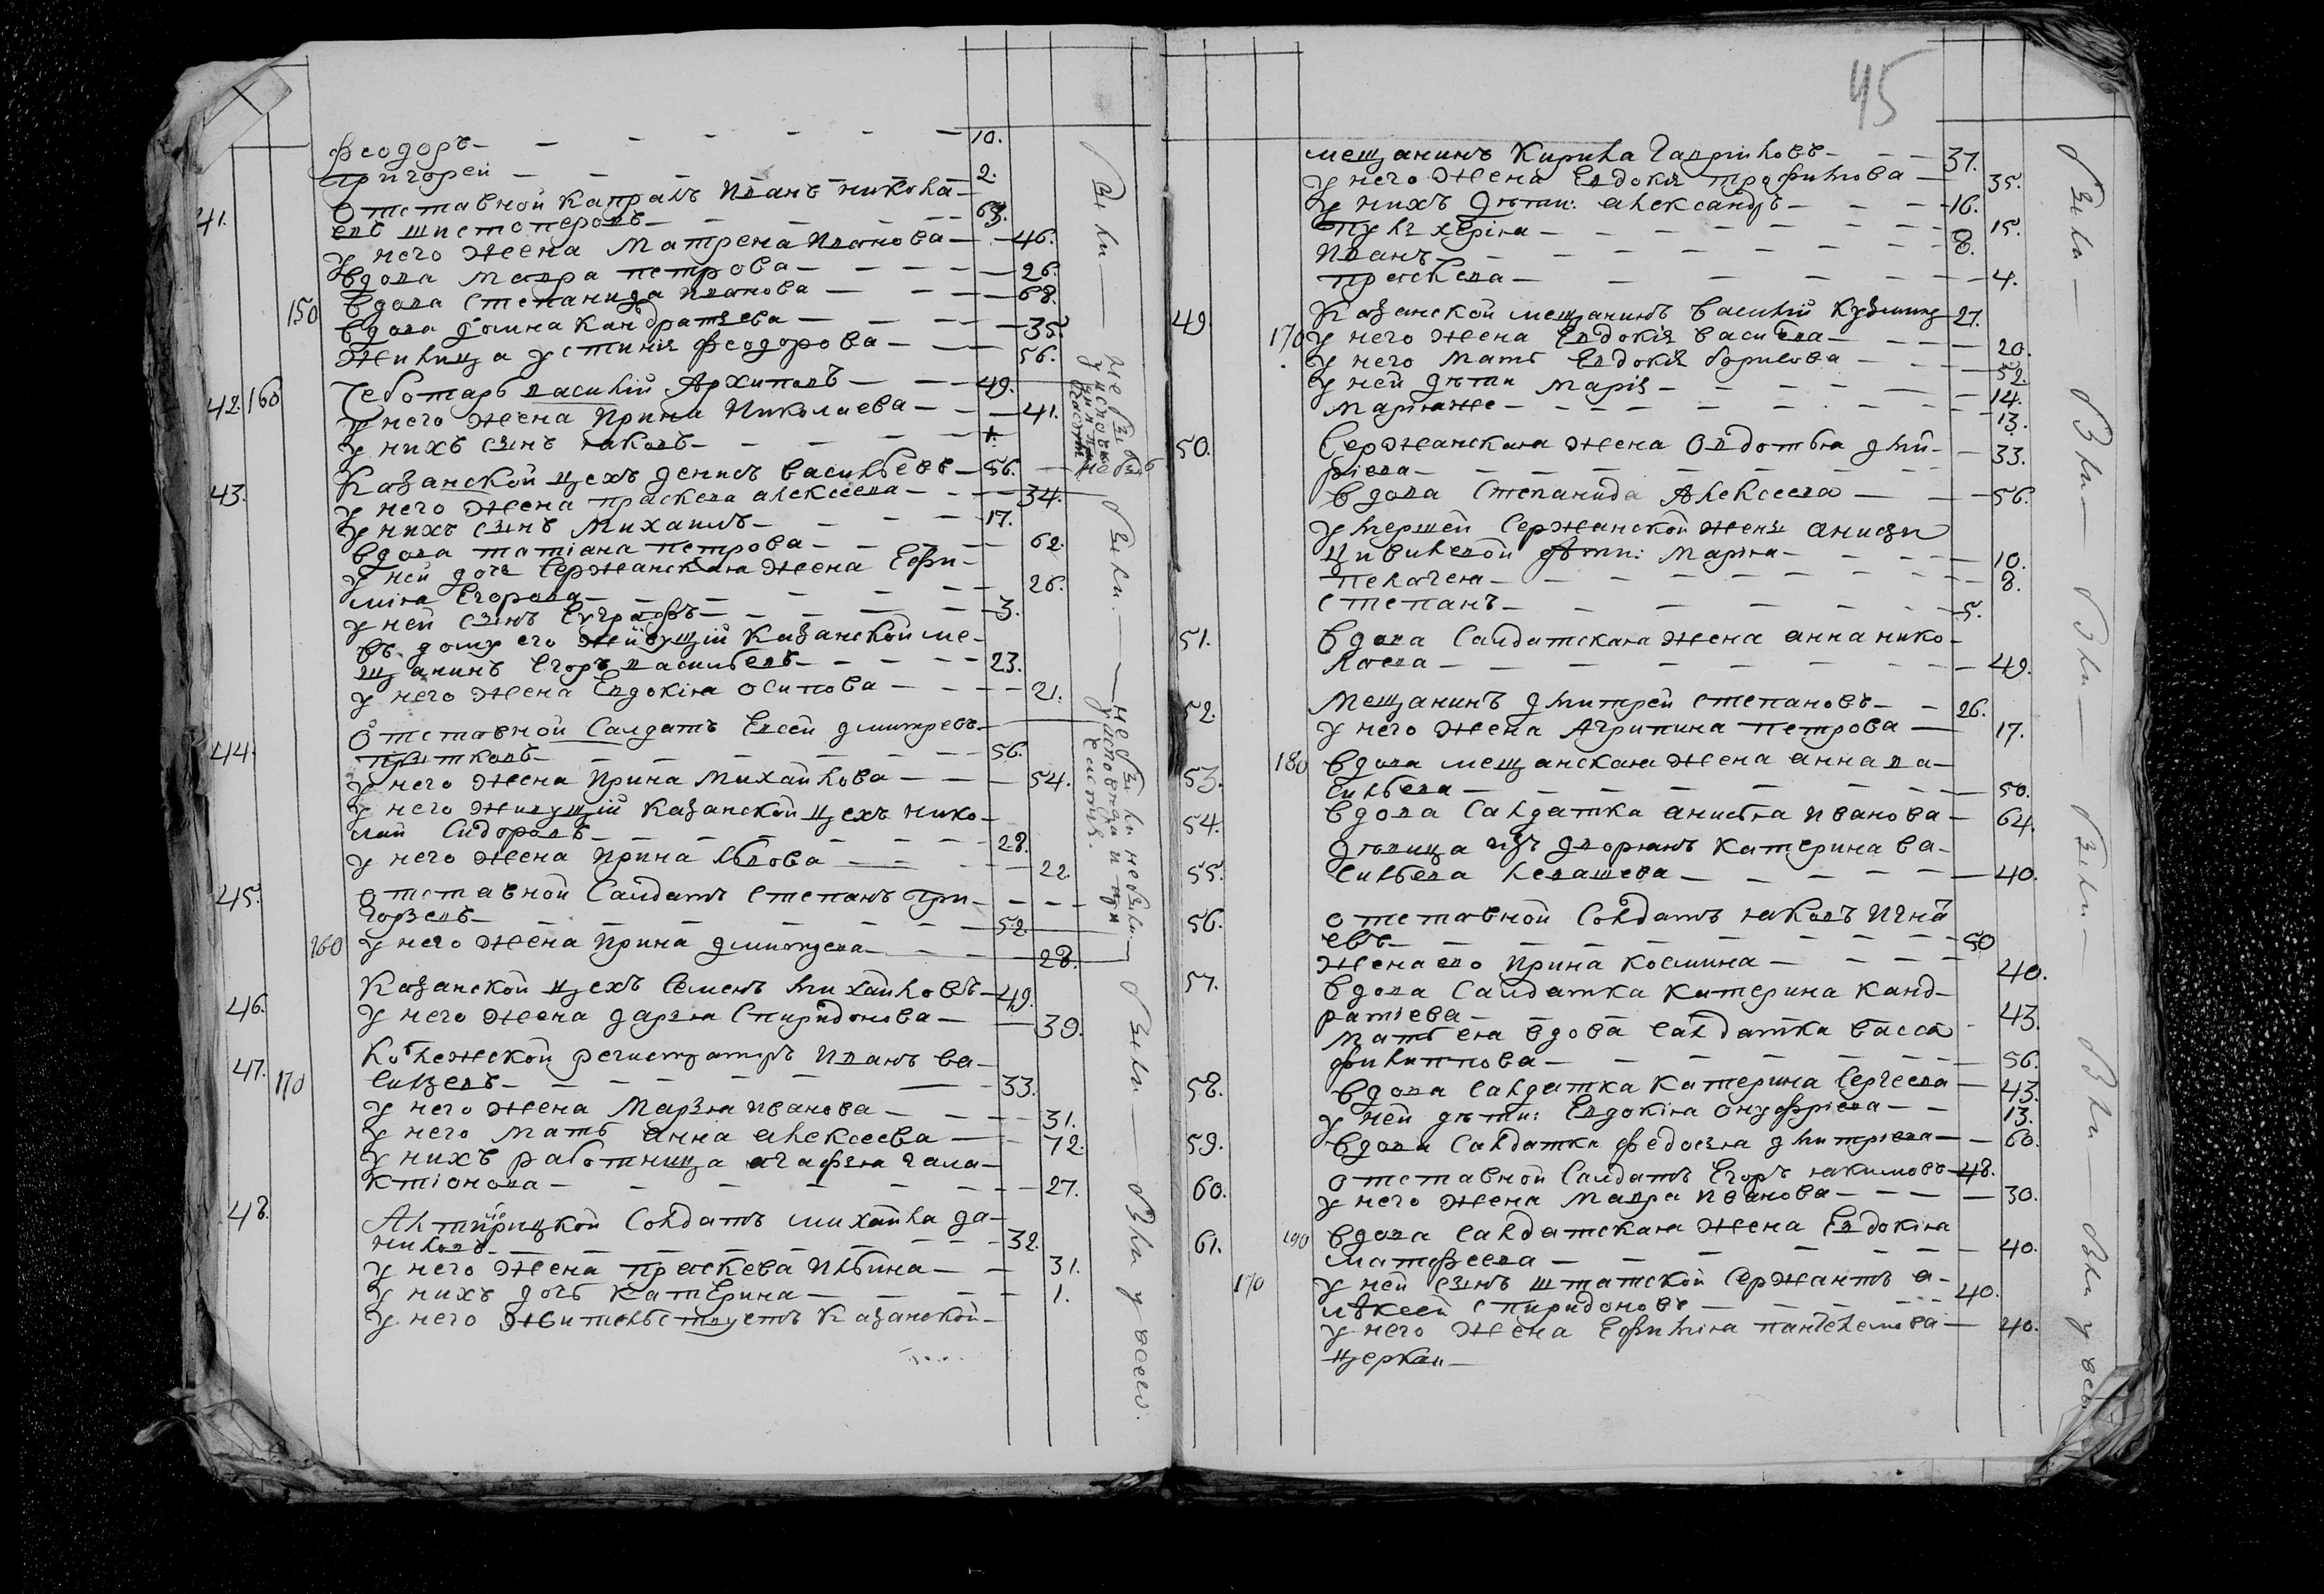 феодоръ — 10.
григорей — 2.
41. Отставной капралъ иванъ никола-
евъ шистоперовъ — 63.
у него жена матрена иванова — 46.
вдова мавра петрова — 26.
150 вдова степанида иванова — 68.
вдова домна кандратьева — 35.
жилица устиния феодорова — 56.
42. 160 Чеботарь василий Архиповъ — 49.
у него жена ирина Николаева — 41.
у нихъ сынъ яковъ — 1.
43. Казанской цехъ денисъ васильевъ — 56.
у него жена праскева алексеева — 34.
у нихъ сынъ михаилъ — 17.
вдова татiана петрова — 62.
у ней дочь сержанская жена Ефи-
мiя Егорова — 26.
у ней сынъ Евграфъ — 3.
въ дому его живущiй казанской ме-
щанинъ Егоръ васильевъ — 23.
у него жена Евдокiя осипова — 21.
44. Отставной салдатъ Евсей дмитревъ
притковъ — 56.
у него жена ирина михайлова — 54.
у него живущiй казанской цехъ нико-
лай сидоровъ — 28.
у него жена ирина львова — 22.
45. отставной салдатъ степанъ гри-
горьевъ — 52.
160 у него жена ирина дмитреева — 28.
46. Казанской цехъ семенъ михайловъ — 49.
у него жена дарья спиридонова — 39.
47. 170 Колежской регистраторъ иванъ ва-
сильевъ — 33.
у него жена марья иванова — 31.
у него мать анна алексеева — 72.
у нихъ работница агафья гала-
ктiонова — 27.
48. солдатъ михайла да-
ниловъ — 32.
у него жена праскева ильина — 31.
у нихъ дочь катерина — 1.
у него жительствуетъ казанской
были — не были были — были — были у всем.
45
мещанинъ кирила гавриловъ — 37.
у него жена Евдокiя трофимова — 35.
у нихъ дѣти: александръ — 16.
пульхерiя — 15.
иванъ — 8.
праскева — 4.
49. Казанской мещанинъ василiй кузминъ — 27.
170 у него жена Евдокiя васильева — 20.
у него мать Евдокiя борисова — 52.
у ней дѣти марiя — 14.
марiяже — 13.
50. Сержанская жена овдотья дми-
рiева — 33.
вдова степанида Алексеева — 56.
умершей сержанской жены анисьи
дѣти: марiя — 10.
пелагея — 8.
степанъ — 5.
51. вдова салдатская жена анна нико-
лаева — 49.
52. мещанинъ дмитрей степановъ — 26.
у него жена Агрипина петрова — 17.
53. 180 вдова мещанская жена анна ва-
сильева — 50.
54. вдова салдатка анисья иванова — 64.
55. дѣвица изъ дворянъ катерина ва-
сильева левашева — 40.
56. отставной солдатъ яковъ игнать
евъ — 50
жена ево ирина космина — 40.
57. вдова салдатка катерина канд-
ратiева — 43.
мать ея вдова салдатка васса
филиппова — 56.
58. вдова салдатка катерина сергеева — 43.
у ней дѣти: Евдокiя онуфрiева — 13.
59. вдова салдатка федосья дмитрiева — 60.
60. отставной салдатъ Егоръ якимовъ — 48.
у него жена мавра иванова — 30.
61. 190 вдова салдатская жена Евдокiя
матфеева — 40.
170 у ней сынъ штатской сержантъ а-
лѣксей спиридоновъ — 40.
у него жена Ефимiя пантелемова — 40.
церкви
были — были — были — были — были — были — были у всем.